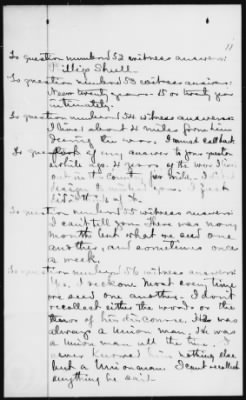 11
To question numbered 52 witness answers:
Phillip Shull.
To question numbered 53 witness answers:
Near twenty years. 15 or twenty years
intimately.
To question numbered 54 witness answers:
I lived about 4 miles from him
during the war. I must call back
of my answer to your question
awhile ago. 4 years of the war I lived
out in the country per mile. I did
I just
lived
To question numbered 55 witness answers:
I can't tell you. There was many
month but what we seed one
another, and sometimes once
a week.
To question numbered 56 witness answers:
Yes. I reckon most every time
we seed one another. I don't
recollect either the words or the
of his discourse. He was
always a Union man. He was
a Union man all the time. I
never knowed him nothing else
but a Union man. I cant recollect
anything he said.